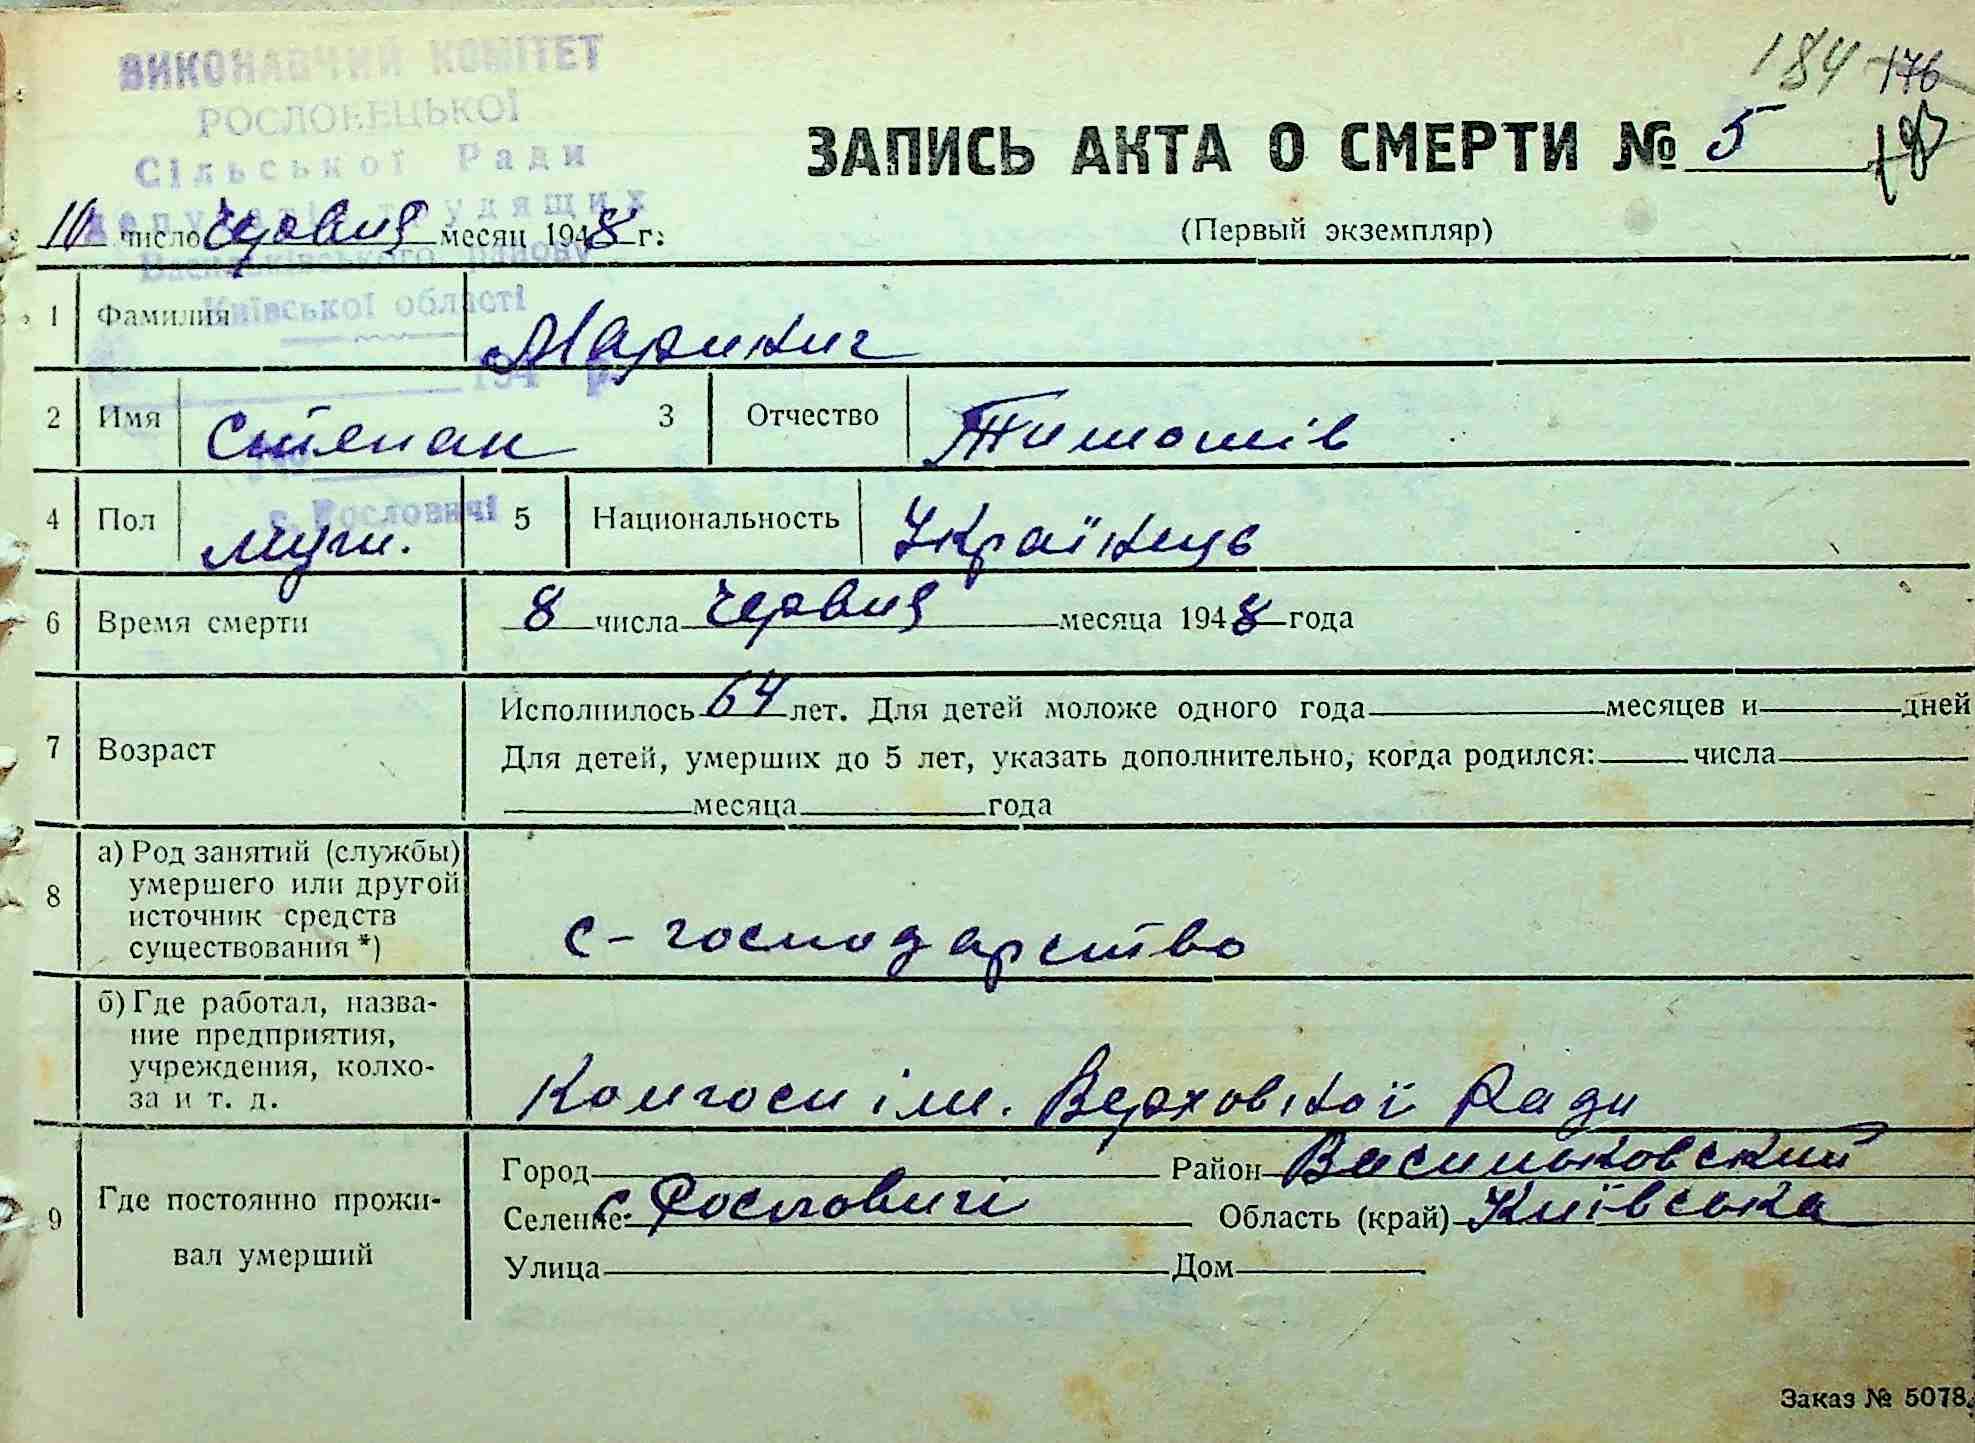 ВИКОНАВЧИЙ КОМІТЕТ
РОСЛОВЕЦЬКОЇ
Сільської Ради
депутатів трудящих
Васильківського району
Київської області
194 р.
с. Рословичі
184 176
ЗАПИСЬ АКТА О СМЕРТИ № 5
(Первый экземпляр)
10 число червня месяц 1948 г:
1 Фамилия Маринич
2 Имя Степан 3 Отчество Тимошів
4 Пол муж. 5 Национальность Українець
6 Время смерти 8 числа червня месяца 1948 года
7 Возраст
Исполнилось 64 лет. Для детей моложе одного года месяцев и дней
Для детей, умерших до 5 лет, указать дополнительно, когда родился: числа
месяца года
8 а) Род занятий (службы)
умершего или другой
источник средств
существования *)
с-господарство
б) Где работал, назва-
ние предприятия,
учреждения, колхо-
за и т. д.
Колгосп ім. Верховної Ради
9 Где постоянно прожи-
вал умерший
Город Район Васильковский
Селение: с. Рословичі Область (край) Київська
Улица Дом
Заказ № 5078.